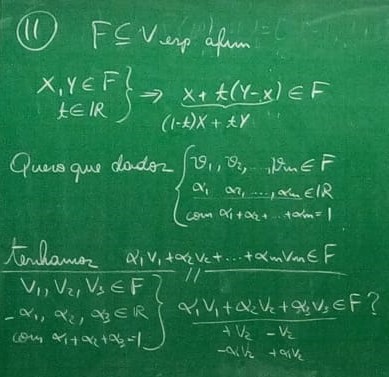 11 F ⊆ V esp afim
X, Y ∈ F
t ∈ ℝ } ⇒ X + t(Y-X) ∈ F
(1-t)X + tY
Quero que dados { v₁, v₂, ..., vₘ ∈ F
α₁ α₂, ..., αₘ ∈ ℝ
com α₁ + α₂ + ... + αₘ = 1
tenhamos α₁V₁ + α₂V₂ + ... + αₘVₘ ∈ F
//
V₁, V₂, V₃ ∈ F
- α₁, α₂, α₃ ∈ ℝ
com α₁ + α₂ + α₃ = 1 } α₁V₁ + α₂V₂ + α₃V₃ ∈ F?
+ V₂ - V₂
- α₁V₂ + α₁V₂